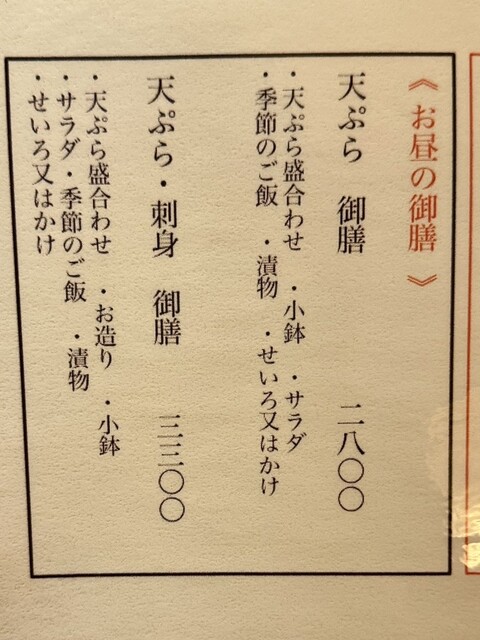 《お昼の御膳》
天ぷら 御膳 二八〇〇
・天ぷら盛合わせ ・小鉢 ・サラダ
・季節のご飯 ・漬物 ・せいろ又はかけ
天ぷら・刺身 御膳 三三〇〇
・天ぷら盛合わせ ・お造り ・小鉢
・サラダ・季節のご飯 ・漬物
・せいろ又はかけ